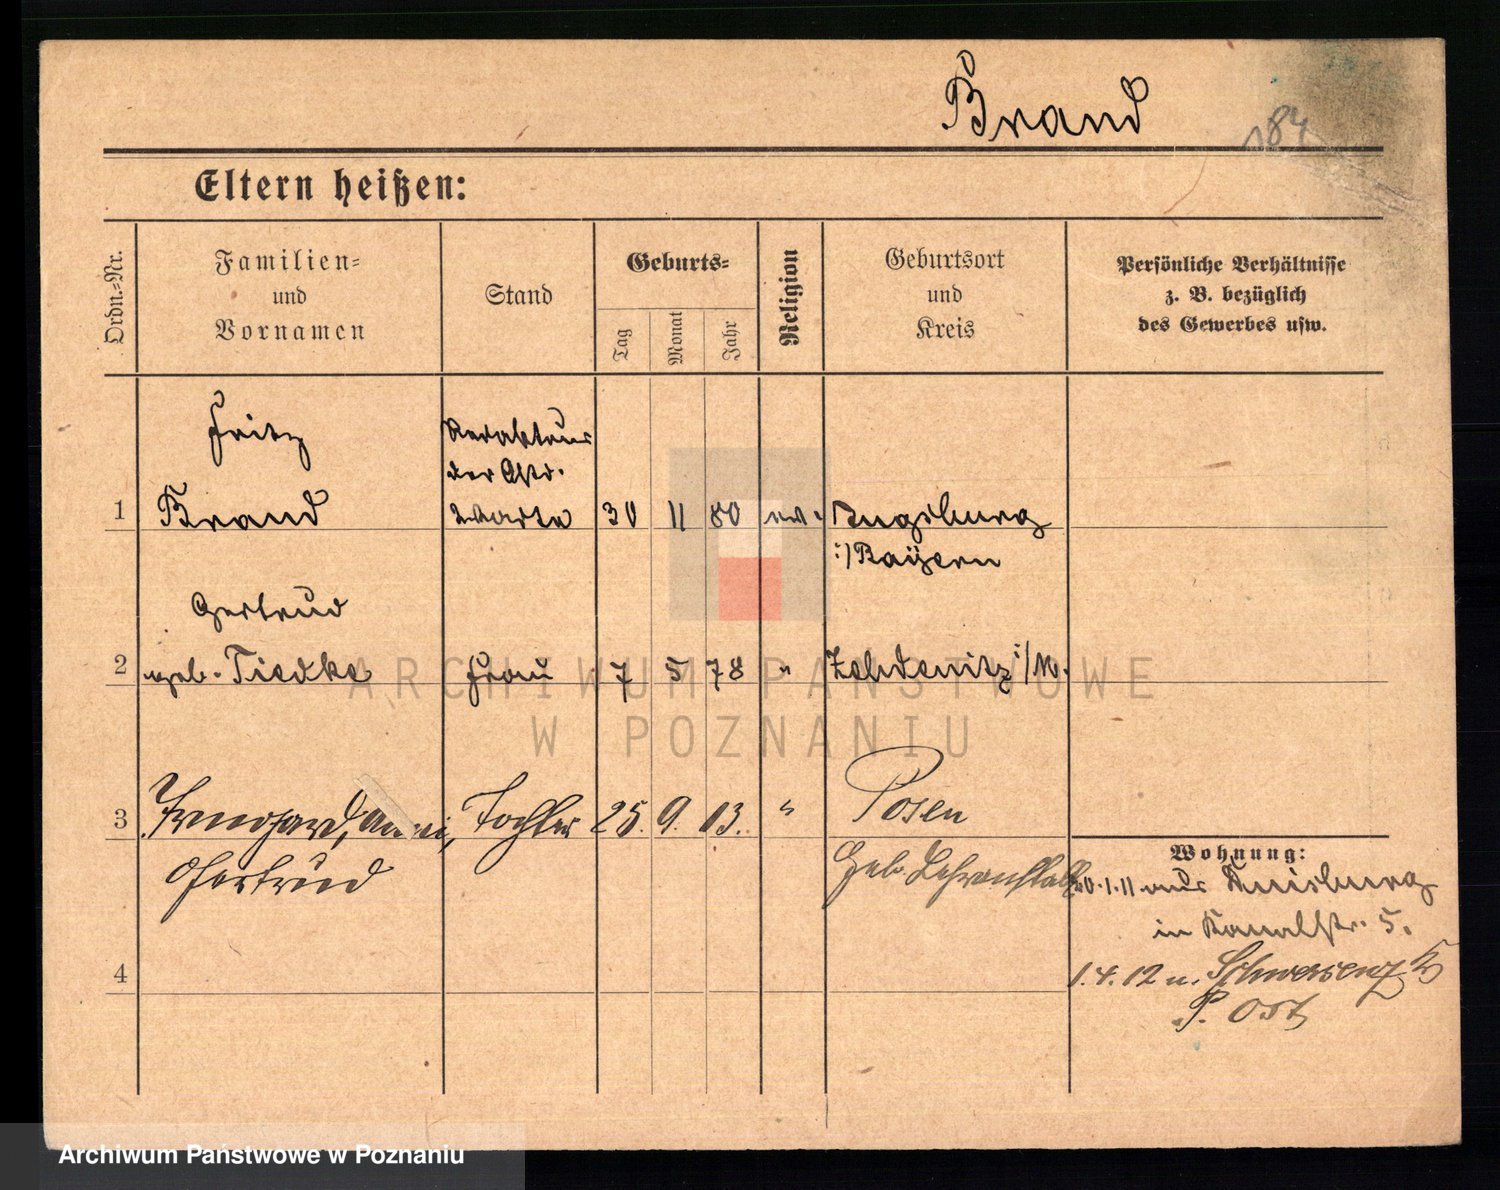 Brand
184
Eltern heißen:
Ordn.-Nr.
Familien-
und
Vornamen
Stand
Geburts-
Tag
Monat
Jahr
Religion
Geburtsort
und
Kreis
Persönliche Verhältnisse
z. B. bezüglich
des Gewerbes usw.
Fritz
Redakteur
der Ostd.
1 Brand Warte 30 11 80 ev. Augsburg
i/Bayern
Gertrud
2 geb. Tiedke Frau 7 5 78 " Zehdenitz i/M.
3 Irmgard, Anni, Tochter 25. 9. 13. " Posen
Gertrud
Geb. Lehranstalt
Wohnung:
20.1.11 aus Duisburg
in Kanalstr. 5.
4
1.4.12 n. Schwersenz
P. Ost
ARCHIWUM PAŃSTWOWE
W POZNANIU
Archiwum Państwowe w Poznaniu